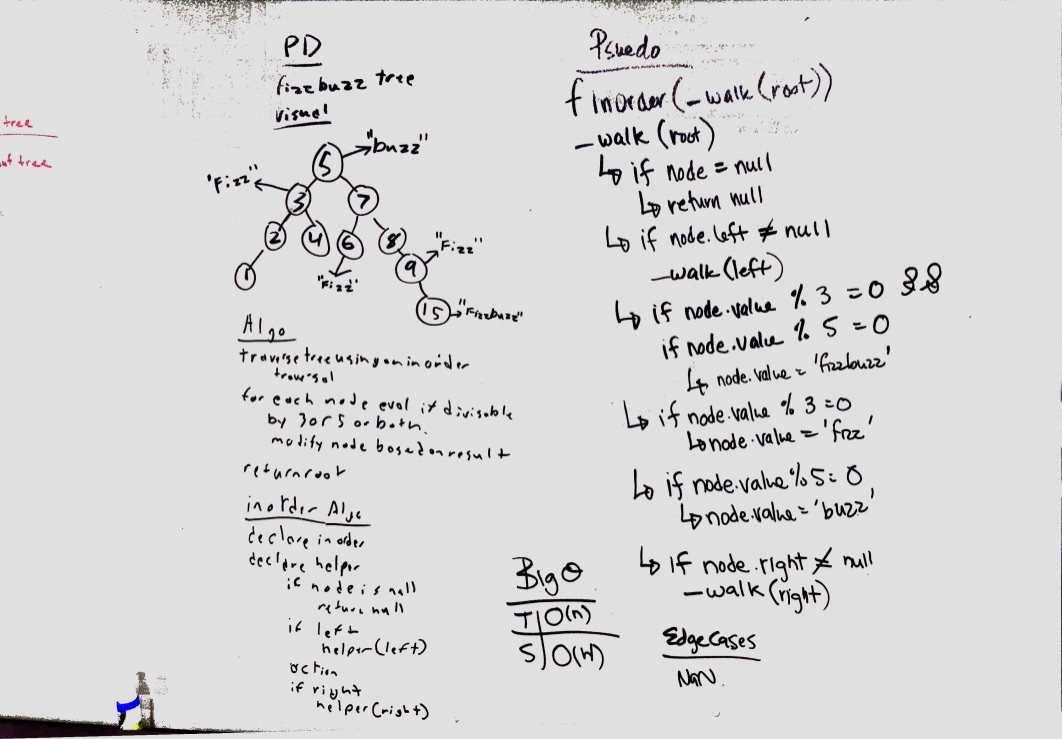 tree
tree
PD
fizzbuzz tree
visual
"buzz"
5
'Fizz"
3
7
2
4
6
8
"Fizz"
9
1
"Fizz"
15
"Fizzbuzz"
Algo
traverse tree using an inorder
traversal
for each node eval if divisable
by 3 or 5 or both.
modify node based on result
return root
inorder Algo
declare inorder
declare helper
if node is null
return null
if left
helper(left)
action
if right
helper(right)
Big O
T O(n)
S O(W)
Psuedo
f inorder(-walk(root))
-walk(root)
↳ if node = null
↳ return null
↳ if node.left ≠ null
-walk(left)
↳ if node.value % 3 = 0 &&
if node.value % 5 = 0
↳ node.value = 'fizzbuzz'
↳ if node.value % 3 = 0
↳ node.value = 'fizz'
↳ if node.value % 5 = 0
↳ node.value = 'buzz'
↳ if node.right ≠ null
-walk(right)
Edge Cases
NaN.